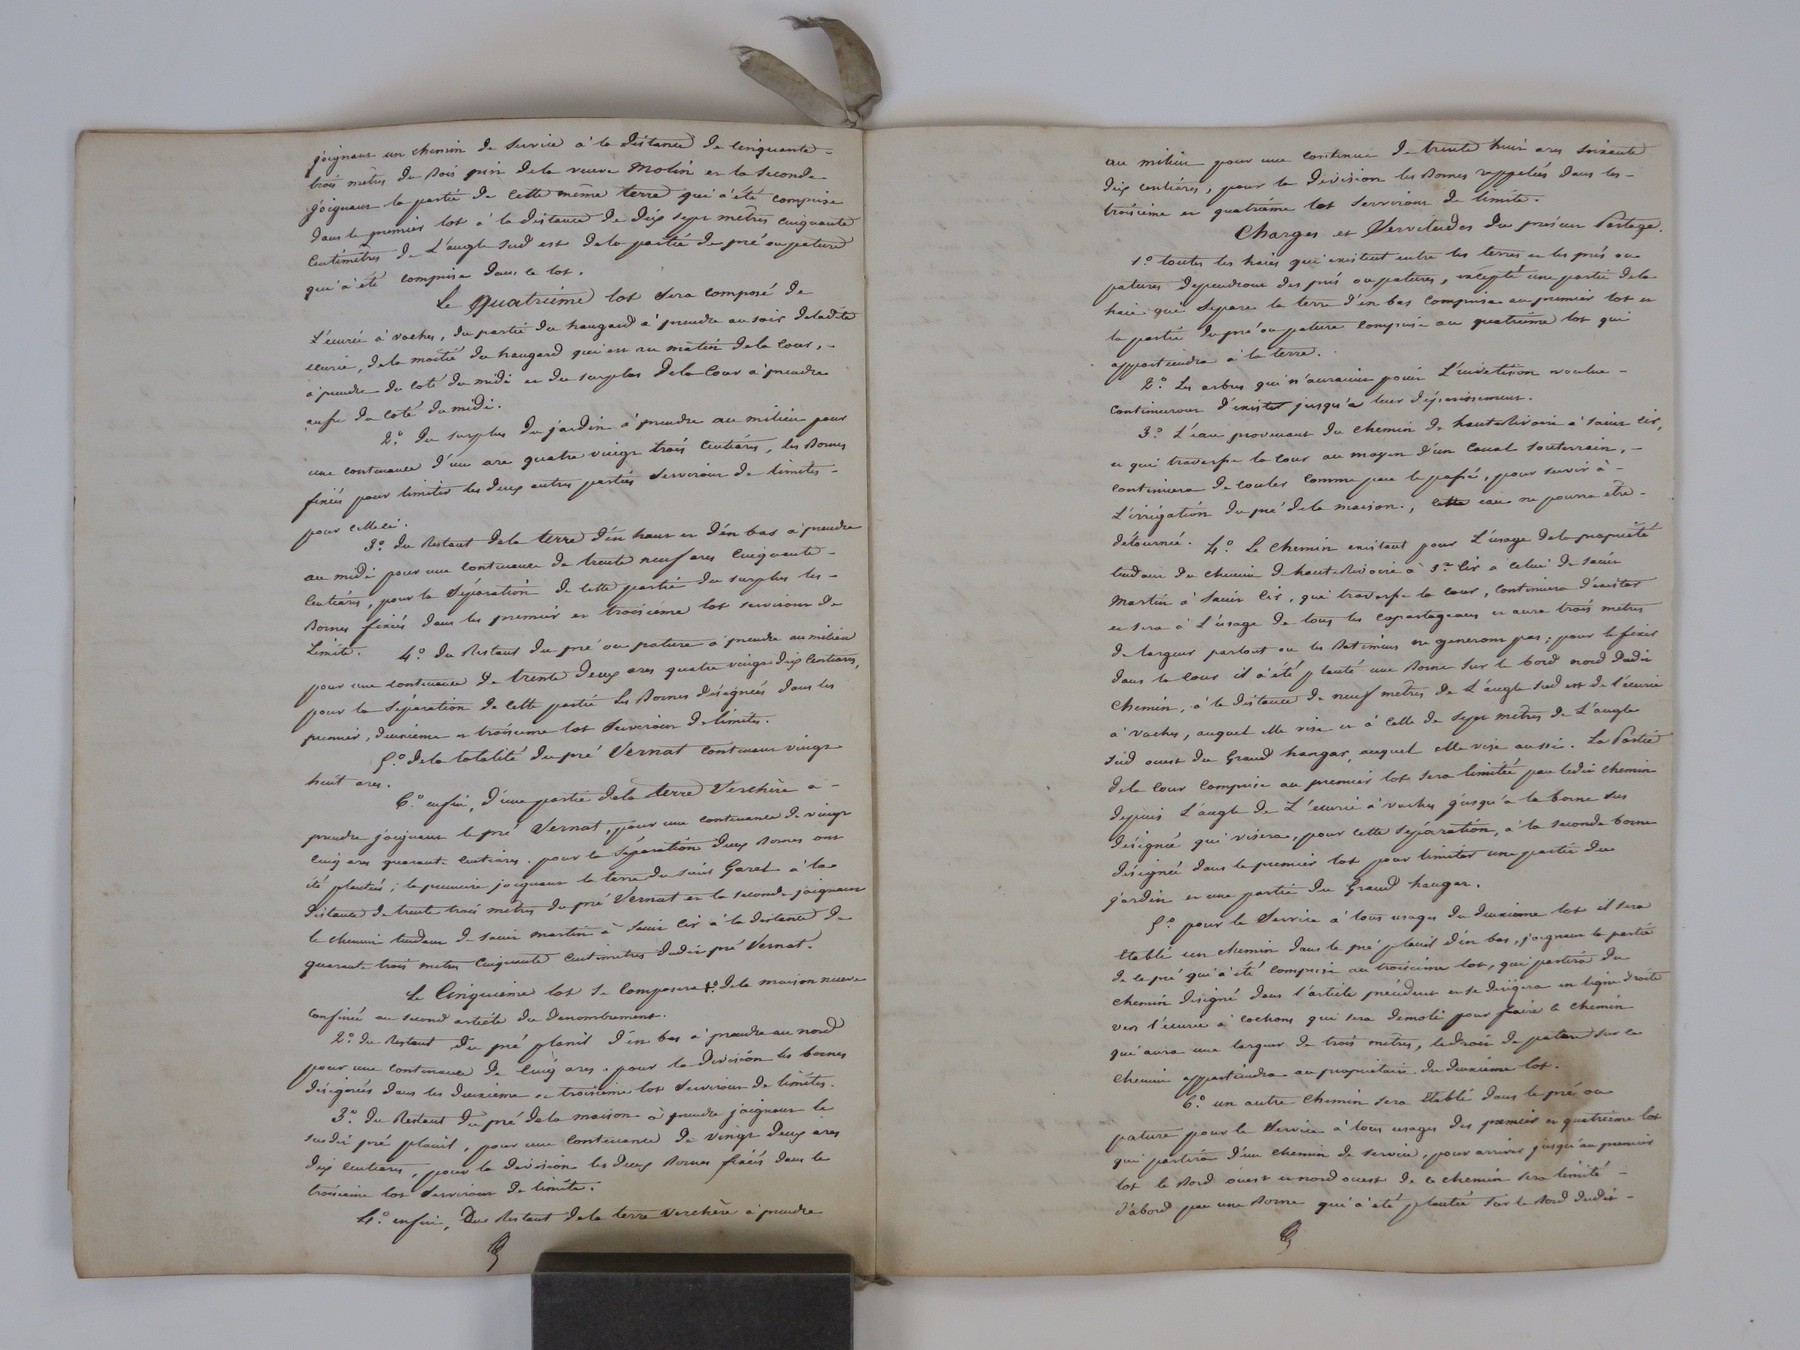 joignant un chemin de service à la distance de cinquante-
trois mètres du bois pin de la veuve Molin et la seconde
joignant la partie de cette même terre qui a été comprise
dans le premier lot à la distance de dix sept mètres cinquante
centimètres de l'angle sud est de la partie de pré ou pature
qui a été comprise dans ce lot.
Le Quatrième lot sera composé de
l'écurie à vaches, du partie du hangard à prendre au soir de ladite
écurie, de la moitié du hangard qui est au matin de la cour, -
à prendre du coté du midi et du surplus de la Cour à prendre
aussi du coté du midi.
2.° du surplus du jardin à prendre au milieu pour
une contenance d'un are quatre vingt trois centiares, les Bornes
fixées pour limiter les deux autres parties serviront de limites -
pour celle ci.
3.° du Restant de la terre d'en haut et d'en bas à prendre
au midi pour une contenance de trente neuf ares cinquante -
centiares, pour la séparation de cette partie du surplus les -
Bornes fixées dans les premier et troisieme lot serviront de
Limite.
4.° du Restant du pré ou pature à prendre au milieu
pour une contenance de trente deux ares quatre vingt dix centiares,
pour la séparation de cette partie les Bornes désignées dans les
premier, deuxieme et troisieme lot serviront de limites.
5.° de la totalité du pré Vernat contenant vingt
huit ares.
6.° enfin, d'une partie de la terre Verchère à -
prendre joignant le pré Vernat, pour une contenance de vingt
cinq ares quarante centiares. pour la séparation deux Bornes ont
été plantées; la premiere joignant la terre du sieur Garet à la
distance de trente trois mètres du pré Vernat et la seconde joignant
le chemin tendant de saint martin à saint Cir à la distance de
quarante trois metres cinquante centimetres dudit pré Vernat.
Le Cinquieme lot se composera 1.° de la maison neuve
confinée au second article du dénombrement.
2.° du Restant du pré planil d'en bas à prendre au nord
pour une contenance de cinq ares. pour la division les bornes
désignées dans les deuxieme et troisieme lot serviront de limites.
3.° du Restant du pré de la maison à prendre joignant le
susdit pré planil, pour une contenance de vingt deux ares
dix centiares, pour la division les deux Bornes fixées dans le
troisieme lot serviront de limite.
4.° enfin, Du Restant de la terre Verchère à prendre
au milieu pour une contenue de trente huit ares soixante
dix centiares, pour la division les Bornes rappelées dans les -
troisieme et quatrième lot serviront de limite.
Charges et Servitudes du présent Partage.
1.° toutes les haies qui existent entre les terres et les prés ou
patures dépendront des prés ou patures, excepté une partie de la
haie qui sépare la terre d'en bas comprise au premier lot et
la partie du pré ou pature comprise au quatrième lot qui
appartiendra à la terre.
2.° Les arbres qui n'auraient point l'invetison voulue -
continueront d'exister jusqu'a leur dépérissement.
3.° L'eau provenant du chemin de haute Rivoire à saint Cir,
et qui traverse la cour au moyen d'un Canal souterrain, -
continuera de couler comme par le passé, pour servir à -
l'irrigation du pré de la maison, cette eau ne pourra être -
détournée.
4.° Le chemin existant pour l'usage de la propriété
tendant du chemin de haute Rivoire à St. Cir à celui de saint
Martin à saint Cir, qui traverse la cour, continuera d'exister
et sera à l'usage de tous les copartageans et aura trois mètres
de largeur partout ou les Batimens ne generont pas; pour le fixer
dans la cour il a été planté une Borne sur le bord nord dudit
chemin, à la distance de neuf mètres de l'angle sud est de l'écurie
à vaches, auquel elle vise et à celle de sept mètres de l'angle
sud ouest du Grand hangar, auquel elle vise aussi. La Partie
de la cour comprise au premier lot sera limitée par ledit chemin
depuis l'angle de l'écurie à vaches jusqu'à la borne sus
désignée qui visera, pour cette séparation, à la seconde borne
désignée dans le premier lot pour limiter une partie du
jardin et une partie du Grand hangar.
5.° pour le service à tous usages du deuxieme lot il sera
établi un chemin dans le pré planil d'en bas, joignant la partie
de ce pré qui a été comprise au troisieme lot, qui partira du
chemin désigné dans l'article précédent et se dirigera en ligne droite
vers l'écurie à cochons qui sera demoli pour faire le chemin
qui aura une largeur de trois mètres, le droit de pature sur ce
chemin appartiendra au propriétaire du deuxième lot.
6.° un autre chemin sera établi dans le pré ou
pature pour le service à tous usages des premier et quatrieme lot
qui partira d'un chemin de service, pour arriver jusqu'au premier
lot le Bord ouest et nord ouest de ce chemin sera limité -
d'abord par une Borne qui a été plantée sur le Bord dudit -